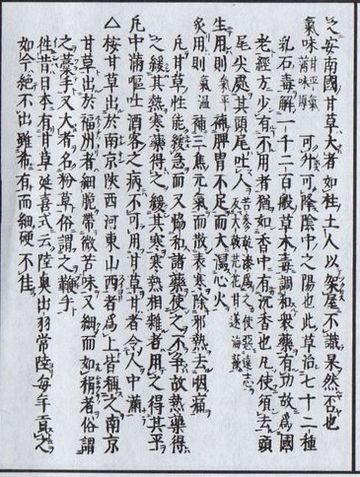 又安南國甘草大者如柱土人以架屋不識果然否也
氣味甘平 味厚 可升可降陰中之陽也此草治七十二種
乳石毒解一千二百般草木毒調和衆藥有功故爲國
老經方少有不用者猶如香中有沉香也凡使須去頭
尾尖處其頭尾吐人 苦參乾漆爲之使惡遠志 反大戟芫花甘遂海藻
生用則氣平補脾胃不足而大瀉心火
炙用則氣温補三焦元氣而散表寒除邪熱去咽痛
凡甘草性能緩急而又協和諸藥使之不爭故熱藥得
之緩其熱寒藥得之緩其寒寒熱相雜者用之得其平
凡中滿嘔吐酒客之病不可用甘草甘者令人中滿
△桉甘草出於南京陜西河東山西者爲上皆稱之南京
甘草出於福州者細脆帶微苦味又細而如稭者俗謂
之藁手又大者名粉草俗謂之手
件昔日本有甘草延喜式云陸奥出羽常陸毎年貢之
如今絶不出雖希有而細硬不佳